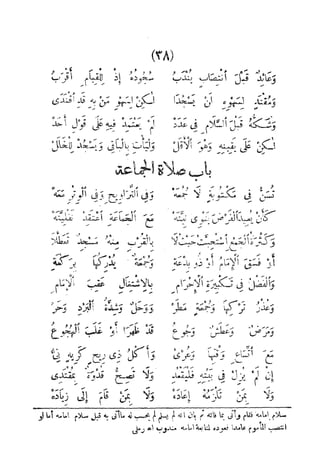 (٣٨)
وَعَائِدٌ قَبْلَ انْتِصَابٍ يُنْدَبُ سُجُودُهُ إِذْ لِلْقِيَامِ أَقْرَبُ
وَمُقْتَدٍ لِسَهْوِهِ لَنْ يَسْجُدَا لَكِنْ لِسَهْوِ مَنْ بِهِ قَدِ اقْتَدَى
وَشَكُّهُ قَبْلَ السَّلَامِ فِي عَدَدْ لَمْ يَعْتَمِدْ فِيهِ عَلَى قَوْلِ أَحَدْ
لَكِنْ عَلَى يَقِينِهِ وَهْوَ الْأَقَلْ وَلْيَأْتِ بِالْبَاقِي وَيَسْجُدْ لِلْخَلَلْ
باب صلاة الجماعة
تُسَنُّ فِي مَكْتُوبَةٍ لَا جُمُعَهْ وَفِي التَّرَاوِيحِ وَفِي الْوِتْرِ مَعَهْ
كَأَنْ يُعِيدَ الْفَرْضَ يَنْوِي نِيَّتَهْ مَعَ الْجَمَاعَةِ اعْتَقِدْ نَفْلِيَّتَهْ
وَكَثْرَةُ الْجَمْعِ اسْتُحِبَّتْ حَيْثُ لَا بِالْقُرْبِ مِنْهُ مَسْجِدٌ تَعَطَّلَا
أَوْ فَسَقَ الْإِمَامُ أَوْ ذُو بِدْعَةِ وَجُمْعَةٌ يُدْرِكُهَا بِرَكْعَةِ
وَالْفَضْلُ فِي تَكْبِيرَةِ الْإِحْرَامِ بِالِاشْتِغَالِ عَقِبَ الْإِمَامِ
وَعُذْرُ تَرْكِهَا وَجُمْعَةٍ مَطَرْ وَوَحَلٌ وَشِدَّةُ الْبَرْدِ وَحَرْ
وَمَرَضٌ وَعَطَشٌ وَجُوعُ قَدْ ظَهَرَا أَوْ غَلَبَ الْهُجُوعُ
مَعَ اتِّسَاعِ وَقْتِهَا وَعُرْيُ وَأَكْلُ ذِي رِيحٍ كَرِيهٍ نِيُّ
إِنْ لَمْ يَزُلْ فِي بَيْتِهِ فَلْيَقْعُدِ وَلَا تَصِحُّ قُدْوَةٌ بِمُقْتَدِي
وَلَا بِمَنْ تَلْزَمُهُ إِعَادَهْ وَلَا بِمَنْ قَامَ إِلَى زِيَادَهْ
سلام امامه فقام وأتى بما فاته ثم بان انه لم يسلم لم يحسب له ماأتى به قبل سلام امامه أما لو
انتصب المأموم عامدا فعوده لمتابعة امامه مندوب اه رملى